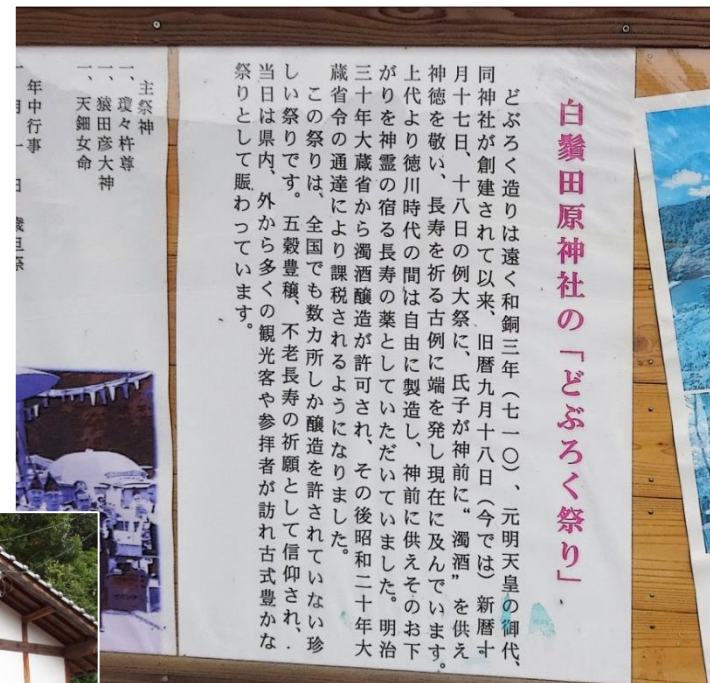 白鬚田原神社の「どぶろく祭り」
どぶろく造りは遠く和銅三年（七一〇）、元明天皇の御代、
同神社が創建されて以来、旧暦九月十八日（今では）新暦十
月十七日、十八日の例大祭に、氏子が神前に“濁酒”を供え
神徳を敬い、長寿を祈る古例に端を発し現在に及んでいます。
上代より徳川時代の間は自由に製造し、神前に供えそのお下
がりを神霊の宿る長寿の薬としていただいていました。明治
三十年大蔵省から濁酒醸造が許可され、その後昭和二十年大
蔵省令の通達により課税されるようになりました。
この祭りは、全国でも数カ所しか醸造を許されていない珍
しい祭りです。五穀豊穣、不老長寿の祈願として信仰され、
当日は県内、外から多くの観光客や参拝者が訪れ古式豊かな
祭りとして賑わっています。
主祭神
一、瓊々杵尊
一、猿田彦大神
一、天鈿女命
年中行事